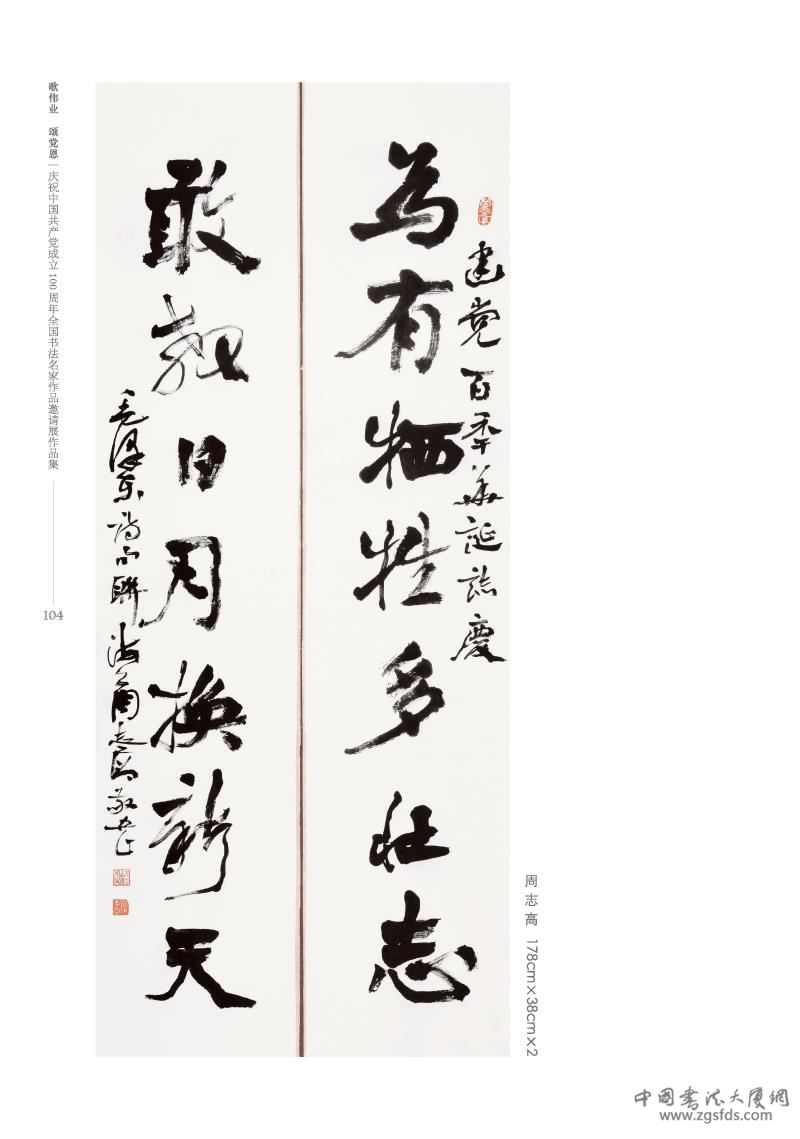 歌伟业 颂党恩｜庆祝中国共产党成立100周年全国书法名家作品邀请展作品集
104
建党百年华诞誌慶
为有牺牲多壮志
敢教日月换新天
毛泽东诗句聯 海上周志高敬书
周志高 178cm×38cm×2
中国书法大厦網
www.zgsfds.com